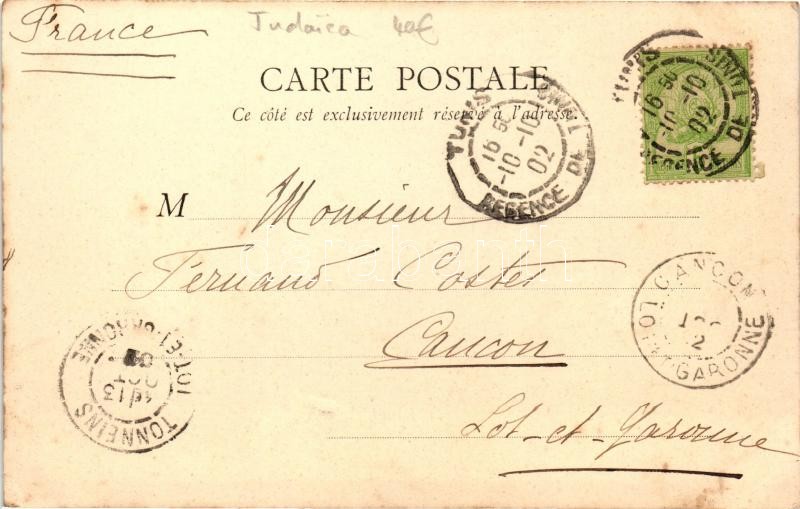 France
Judaïca 40€
CARTE POSTALE
Ce côté est exclusivement réservé à l'adresse.
M Monsieur
Fernand Costes
Cancon
Lot-et-Garonne
TUNIS
16 50
10-10
02
REGENCE DE TUNIS
TUNIS
16 50
10-10
02
REGENCE DE TUNIS
CANCON
LOT-ET-GARONNE
TONNEINS
13
OCT
02
LOT-ET-GARONNE
darabanth